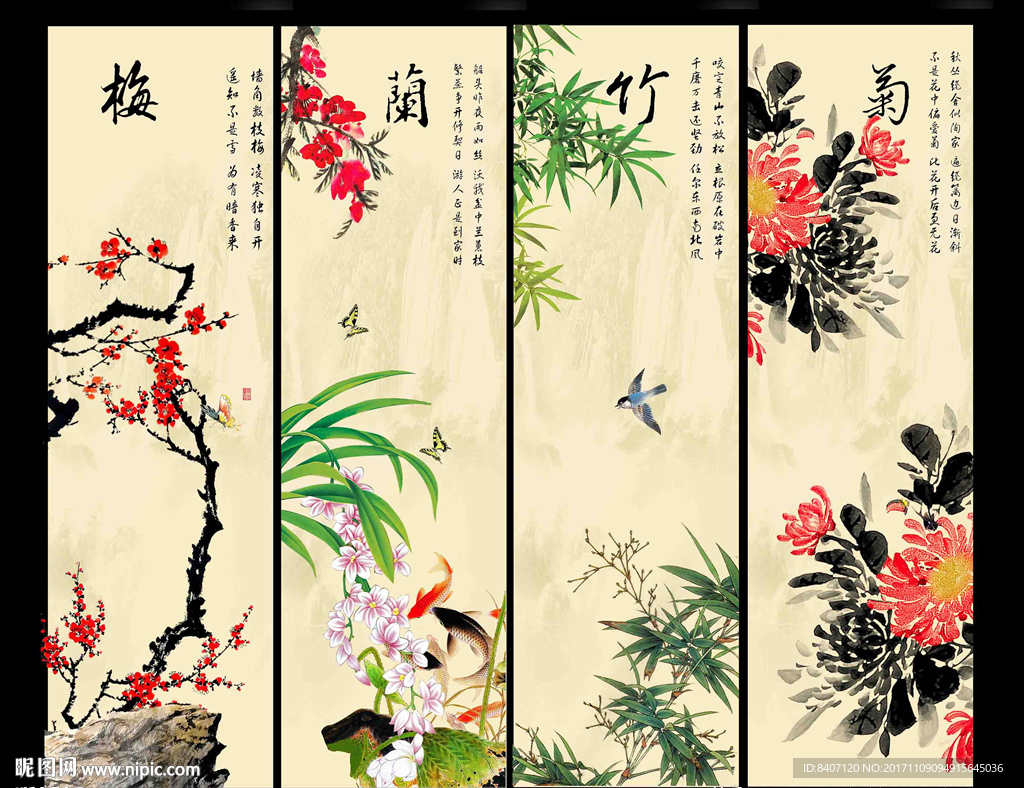 梅
墙角数枝梅 凌寒独自开
遥知不是雪 为有暗香来
蘭
船头昨夜雨如丝 沃我盆中兰蕙枝
繁蕊争开修契日 游人正是到家时
竹
咬定青山不放松 立根原在破岩中
千磨万击还坚劲 任尔东西南北风
菊
秋丛绕舍似陶家 遍绕篱边日渐斜
不是花中偏爱菊 此花开后更无花
昵图网 www.nipic.com
ID:8407120 NO:20171109094915645036